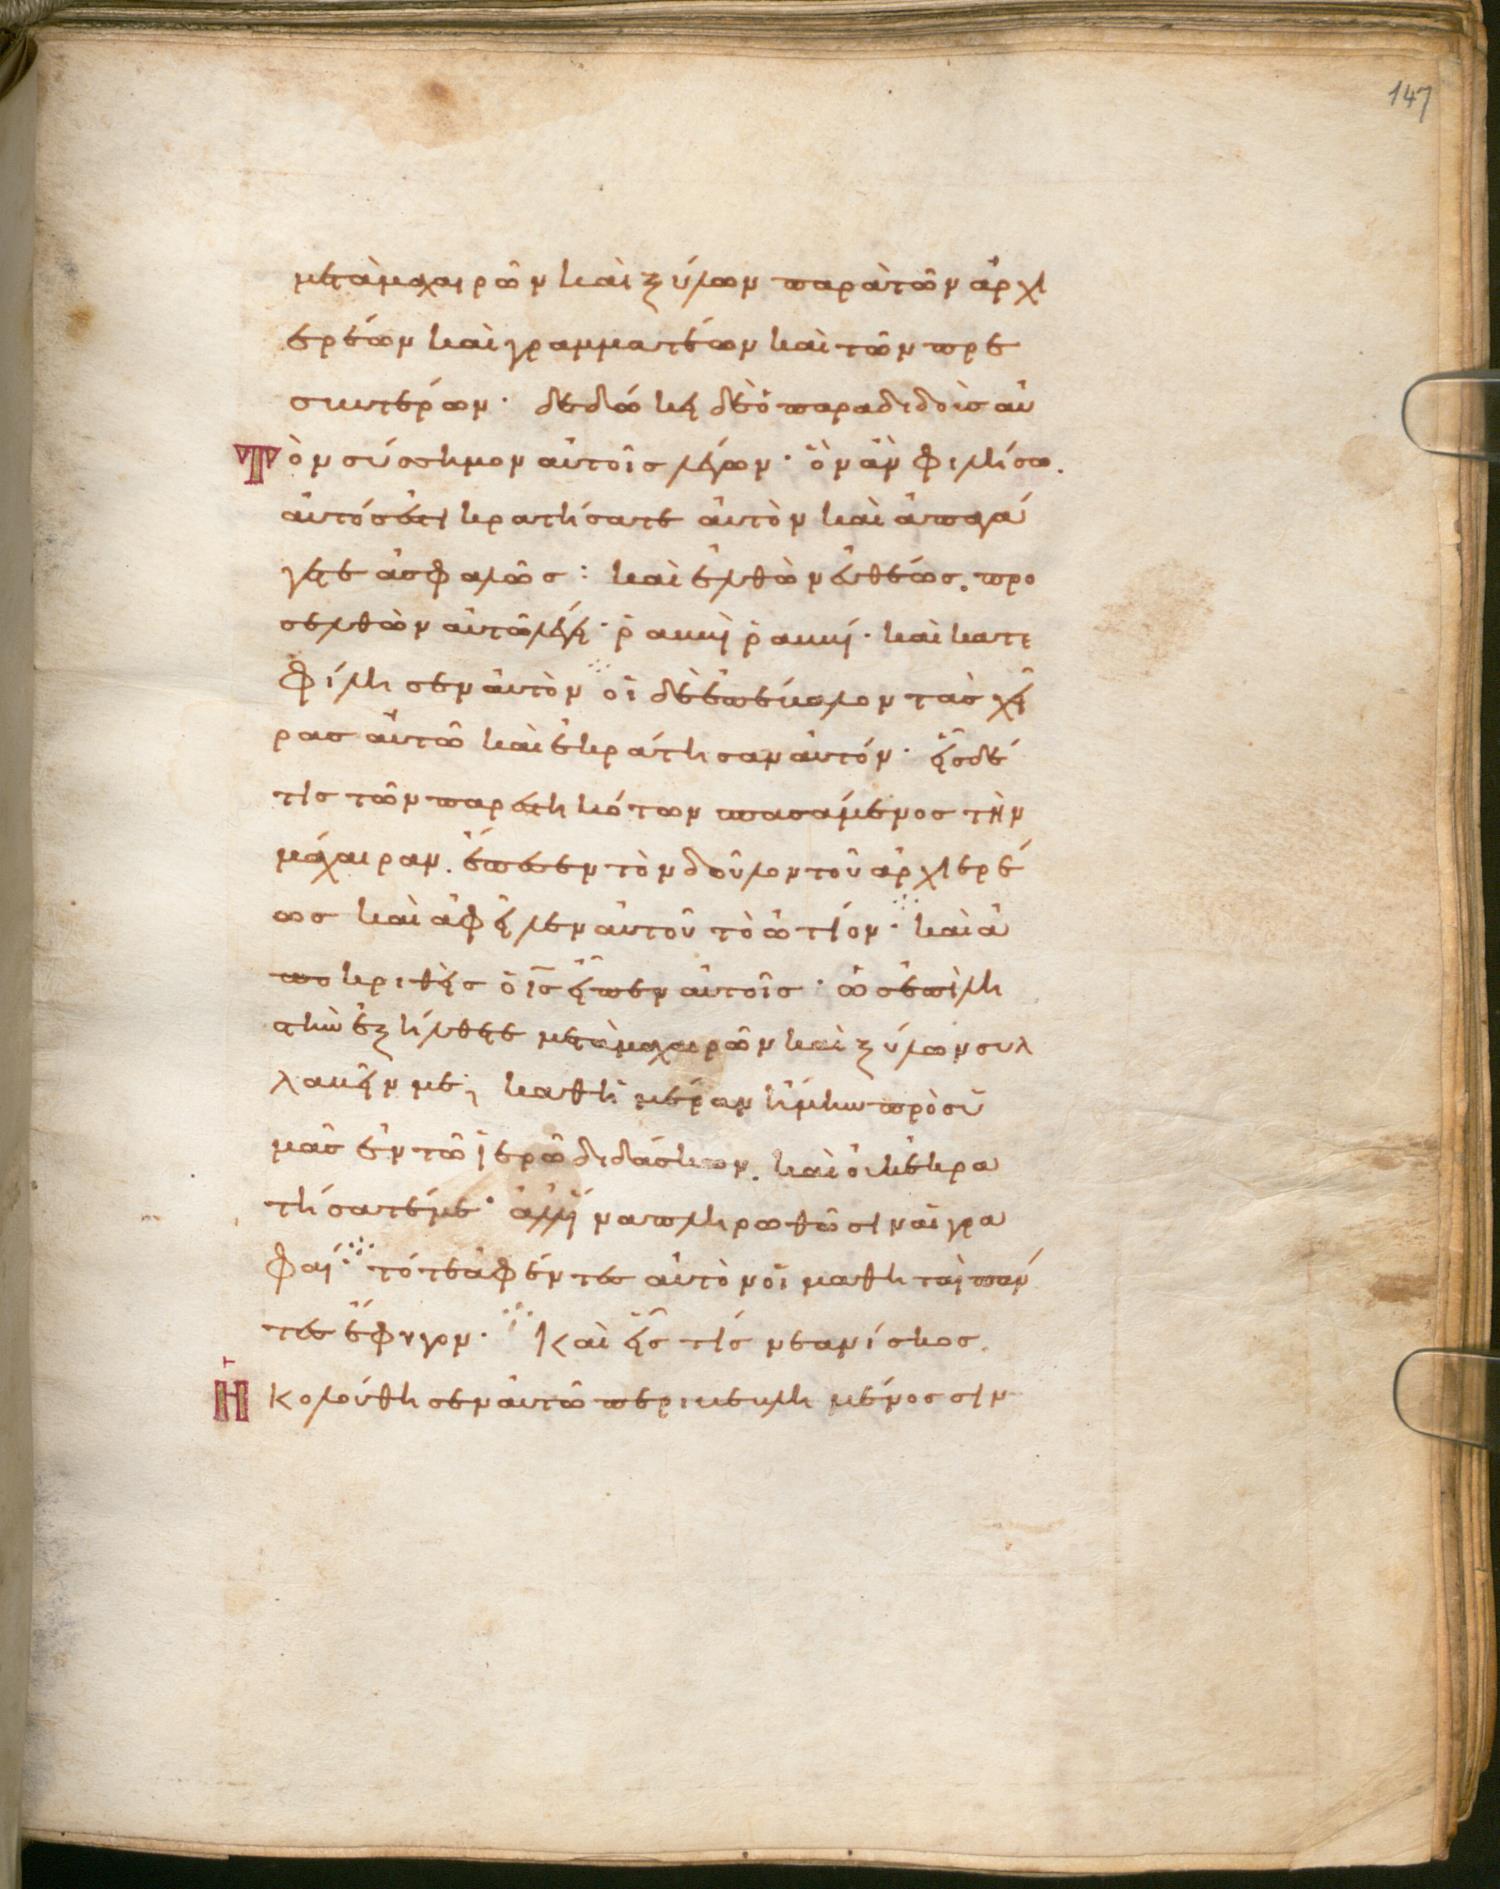 147
μετὰ μαχαιρῶν καὶ ξύλων παρὰ τῶν ἀρχι
ερέων καὶ γραμματέων καὶ τῶν πρε
σβυτέρων· δεδώκει δὲ ὁ παραδιδοὺς αὐ
τὸν σύσσημον αὐτοῖς λέγων· ὃν ἂν φιλήσω.
αὐτός ἐστι κρατήσατε αὐτὸν καὶ ἀπαγά
γετε ἀσφαλῶς: καὶ ἐλθὼν εὐθέως. προ
σελθὼν αὐτῶ λέγει· ῥαββὶ ῥαββί· καὶ κατε
φίλησεν αὐτὸν οἱ δὲ ἐπέβαλον τὰς χεῖ
ρας αὐτῶ καὶ ἐκράτησαν αὐτόν· εἷς δέ
τις τῶν παρεστηκότων σπασάμενος τὴν
μάχαιραν. ἔπαισεν τὸν δοῦλον τοῦ ἀρχιερέ
ως καὶ ἀφεῖλεν αὐτοῦ τὸ ὠτίον· καὶ ἀ
ποκριθεὶς ὁ ι̅ς̅ εἶπεν αὐτοῖς· ὡς ἐπὶ λη
στὴν ἐξήλθετε μετὰ μαχαιρῶν καὶ ξύλων συλ
λαβεῖν με; καθ' ἡμέραν ἤμην πρὸς ὑ
μᾶς ἐν τῶ ἱερῶ διδάσκων. καὶ οὐκ ἐκρα
τήσατέ με· ἀλλ' ἵνα πληρωθῶσιν αἱ γρα
φαί· τότε ἀφέντες αὐτὸν οἱ μαθηταὶ πάν
τες ἔφυγον· Καὶ εἷς τίς νεανίσκος.
ἠκολούθησεν αὐτῶ περιβεβλημένος σιν